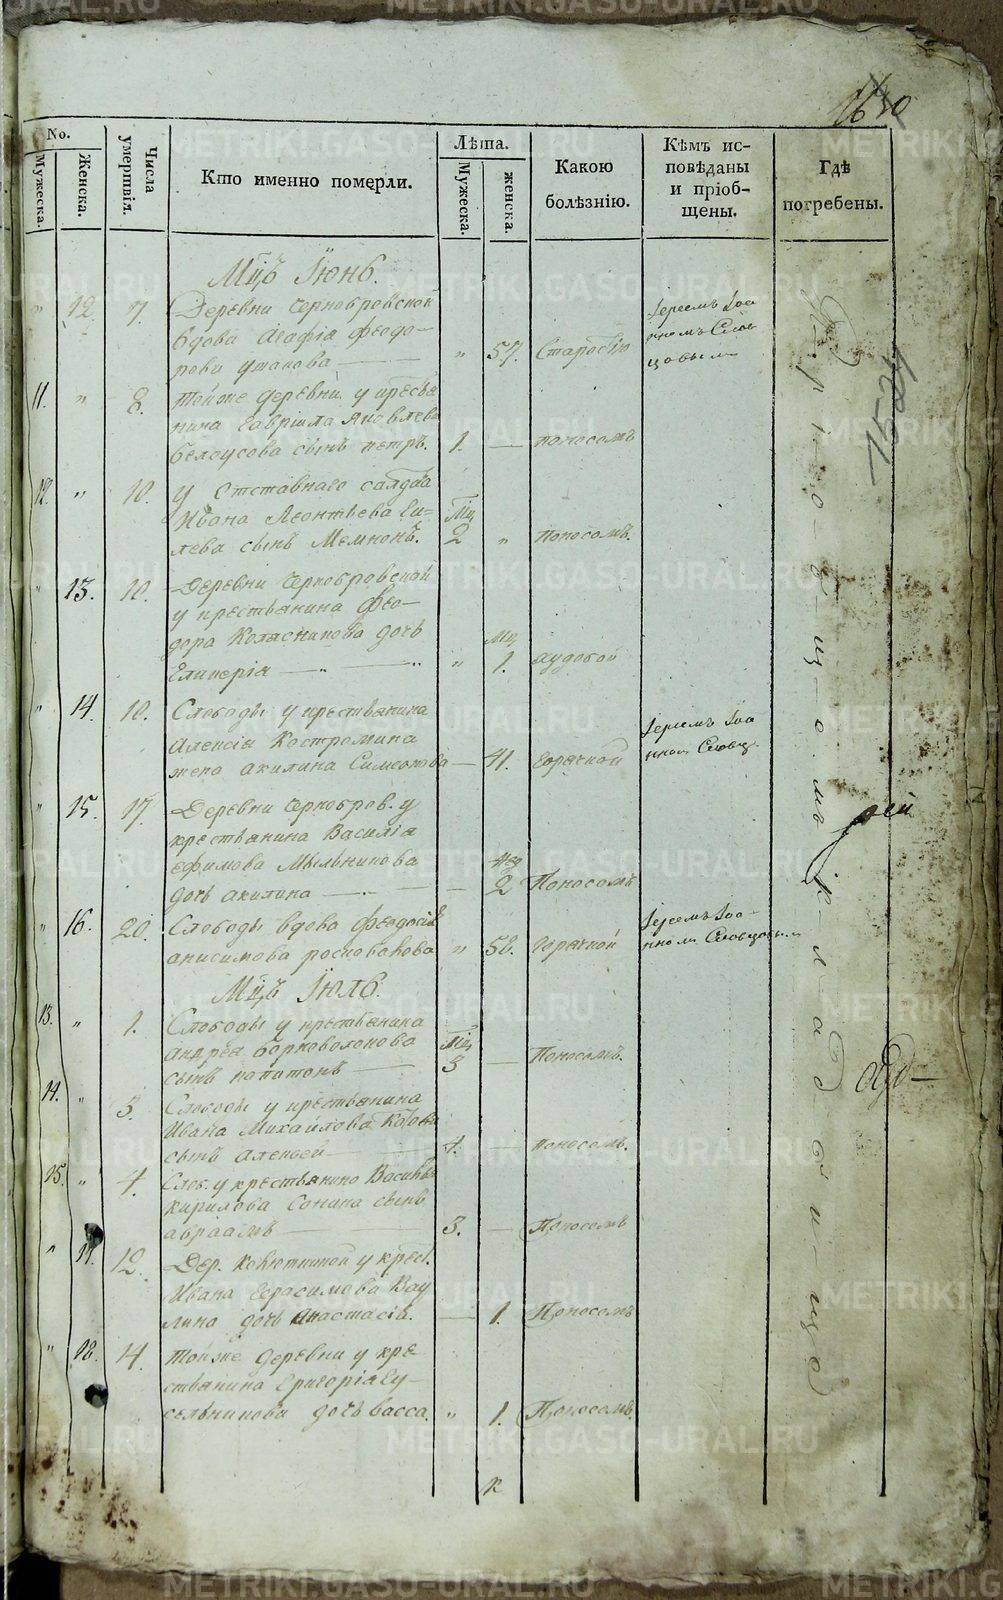 1630
1524
No.
Мужеска.
Женска.
Числа умертвія.
Кто именно померли.
Лѣта.
Мужеска.
женска.
Какою болѣзнію.
Кѣмъ исповѣданы и пріобщены.
Гдѣ погребены.
Мцъ Іюнь.
" 12. 7. Деревни Чернобровской
вдова Агафія Феодо-
рова Ушакова " 57. Старостію
Іереемъ Іоа
нномъ Слов
цовым
11. " 8. Тойже деревни у кресть
нина Гавріила Яковлева
Белоусова сынъ Петръ. 1. — поносомъ
12. " 10. У отставнаго салдата
Ивана Леонтьева
лева сынъ Мемнонъ. Мц 2 " поносомъ.
" 13. 10. Деревни Чернобровской
у крестьянина Фео-
дора Колясникова дочь
Гликерія " Мц 1. худобой
" 14. 10. Слободы у крестьянина
Алексія Костромина
жена Акилина Симеонова — 41. горячкой
Іереемъ Іоа
нном Словц.
" 15. 17. Деревни Чернобров. у
крестьянина Василія
Ефимова Мыльникова
дочь Акилина — — 2 Поносомъ
" 16. 20. Слободы вдова Феодосія
Анисимова " 58. Горячкой
Іереемъ Іоа-
нном Словцовым
Мцъ Іюль.
13. " 1. Слободы у крестьянина
Андрея Борноволокова
сынъ Капитонъ — Мц 3 — Поносомъ.
14. " 3. Слободы у крестьянина
Ивана Михайлова
сынъ Алексей 1. поносомъ.
15. " 4. Слоб. у крестьянина Василья
Кирилова Сонина сынъ
Авраамъ 3. — Поносомъ
" 17. 12. Дер. у крест.
Ивана Герасимова Вау
лина дочь Анастасія. — 1. Поносомъ
" 18. 14. Тойже деревни у кре
стьянина Григорія Су-
сельникова дочь Васса. " 1. Поносомъ.
На приходском кладбище
рей